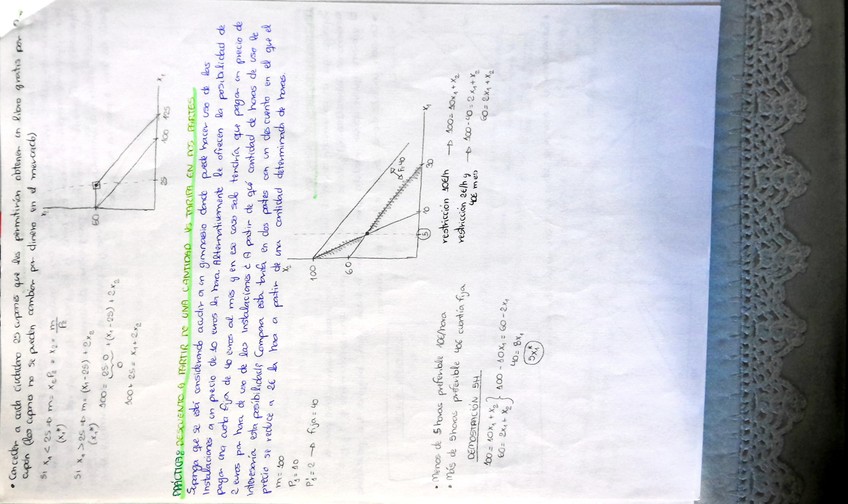 • Conceder a cada ciudadano 25 cupones que les permitirán obtener un libro gratis por
cupón (los cupones no se pueden cambiar por dinero en el mercado)
Si x1 < 25 → m = x2P2 = x2 = m/P2
(x1*)
Si x1 > 25 → m = (x1-25) + 2x2
(x1*)
100 = 25·0 + (x1-25) + 2x2
0
100 + 25 = x1 + 2x2
60
25
100
125
x1
PRÁCTICA 2 DESCUENTO A PARTIR DE UNA CANTIDAD VS TARIFA EN DOS PARTES
Suponga que se está considerando acudir a un gimnasio donde puede hacer uso de las
instalaciones a un precio de 10 euros la hora. Alternativamente le ofrecen la posibilidad de
pagar una cuota fija de 40 euros al mes y en ese caso solo tendría que pagar un precio de
2 euros por hora de uso de las instalaciones ¿A partir de qué cantidad de horas de uso le
interesaría esta posibilidad? Compara esta tarifa en dos partes con un descuento en el que el
precio se reduce a 2€ la hora a partir de una cantidad determinada de horas.
m = 100
P1 = 10
P1' = 2 → fija = 40
x2
100
60
5
10
30
x1
restricción 10€/h → 100 = 10x1 + x2
restricción 2€/h y → 100 - 40 = 2x1 + x2
40€ mes
60 = 2x1 + x2
• Menos de 5 horas preferible 10€/hora
• Más de 5 horas preferible 40€ cuantía fija
DEMOSTRACIÓN 5H
100 = 10x1 + x2 } 100 - 10x1 = 60 - 2x1
60 = 2x1 + x2
40 = 8x1
5x1*